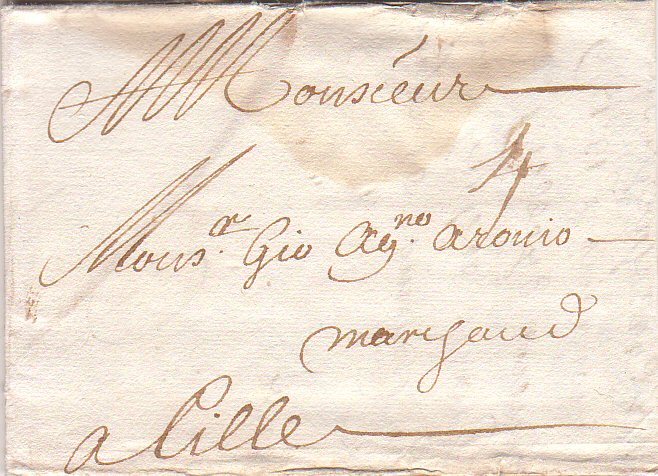 Monsieur
4
Mons.r Gio Ag.no Aronio
marchand
a Lille